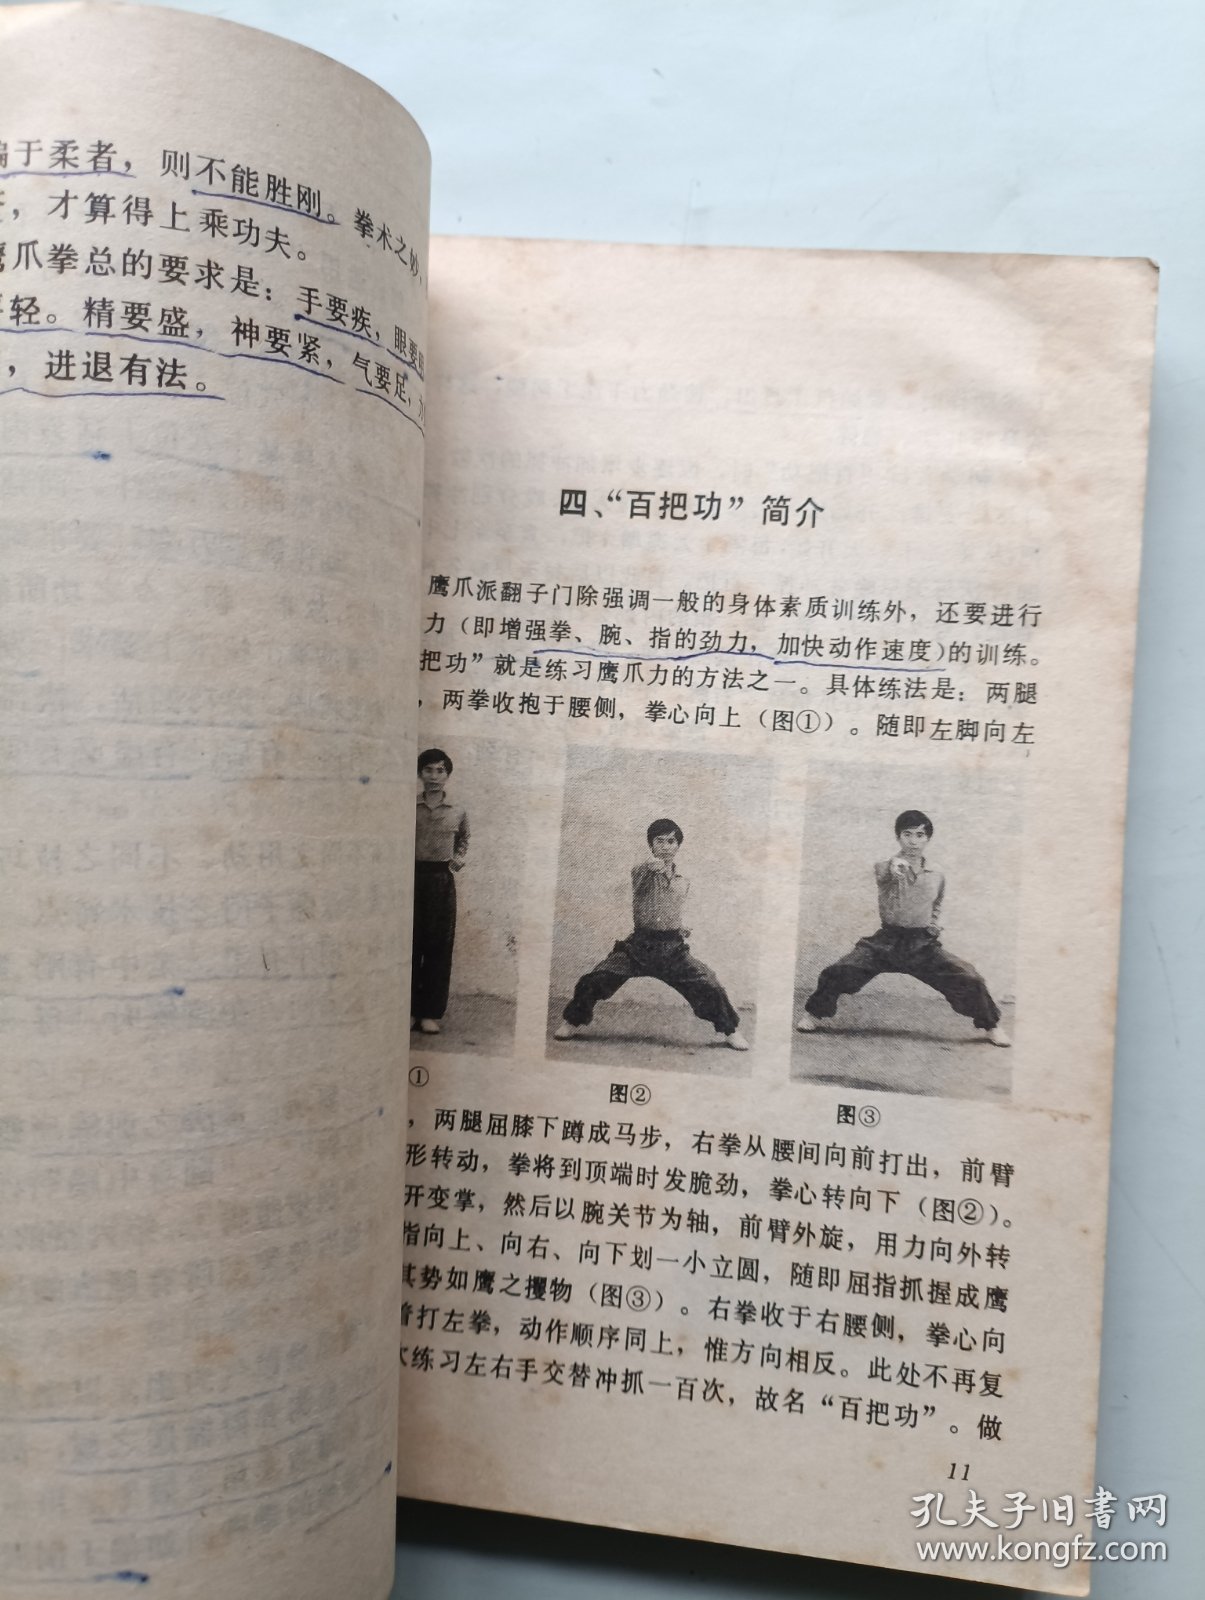 于柔者，则不能胜刚。拳术之妙，
，才算得上乘功夫。
爪拳总的要求是：手要疾，眼要
轻。精要盛，神要紧，气要足，
，进退有法。
四、“百把功”简介
鹰爪派翻子门除强调一般的身体素质训练外，还要进行
力（即增强拳、腕、指的劲力，加快动作速度）的训练。
把功”就是练习鹰爪力的方法之一。具体练法是：两腿
，两拳收抱于腰侧，拳心向上（图①）。随即左脚向左
①
图②
图③
，两腿屈膝下蹲成马步，右拳从腰间向前打出，前臂
形转动，拳将到顶端时发脆劲，拳心转向下（图②）。
开变掌，然后以腕关节为轴，前臂外旋，用力向外转
指向上、向右、向下划一小立圆，随即屈指抓握成鹰
其势如鹰之攫物（图③）。右拳收于右腰侧，拳心向
打左拳，动作顺序同上，惟方向相反。此处不再复
练习左右手交替冲抓一百次，故名“百把功”。做
11
孔夫子旧书网
www.kongfz.com